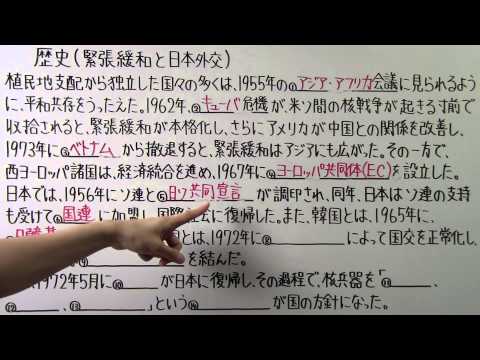 歴史(緊張緩和と日本外交)
植民地支配から独立した国々の多くは、1955年の①アジア・アフリカ会議に見られるよう
に、平和共存をうったえた。1962年、②キューバ危機が、米ソ間の核戦争が起きる寸前で
収拾されると、緊張緩和が本格化し、さらにアメリカが中国との関係を改善し、
1973年に③ベトナムから撤退すると、緊張緩和はアジアにも広がった。その一方で、
西ヨーロッパ諸国は、経済統合を進め、1967年に④ヨーロッパ共同体(EC)を設立した。
日本では、1956年にソ連と⑤日ソ共同宣言が調印され、同年、日本はソ連の支持
も受けて⑥国連に加盟し、国際社会に復帰した。また、韓国とは、1965年に
日韓基 国とは、1972年に によって国交を正常化し、
を結んだ。
1972年5月に が日本に復帰し、その過程で、核兵器を「⑪ 、
⑫ 、⑬ 」という⑭ が国の方針になった。